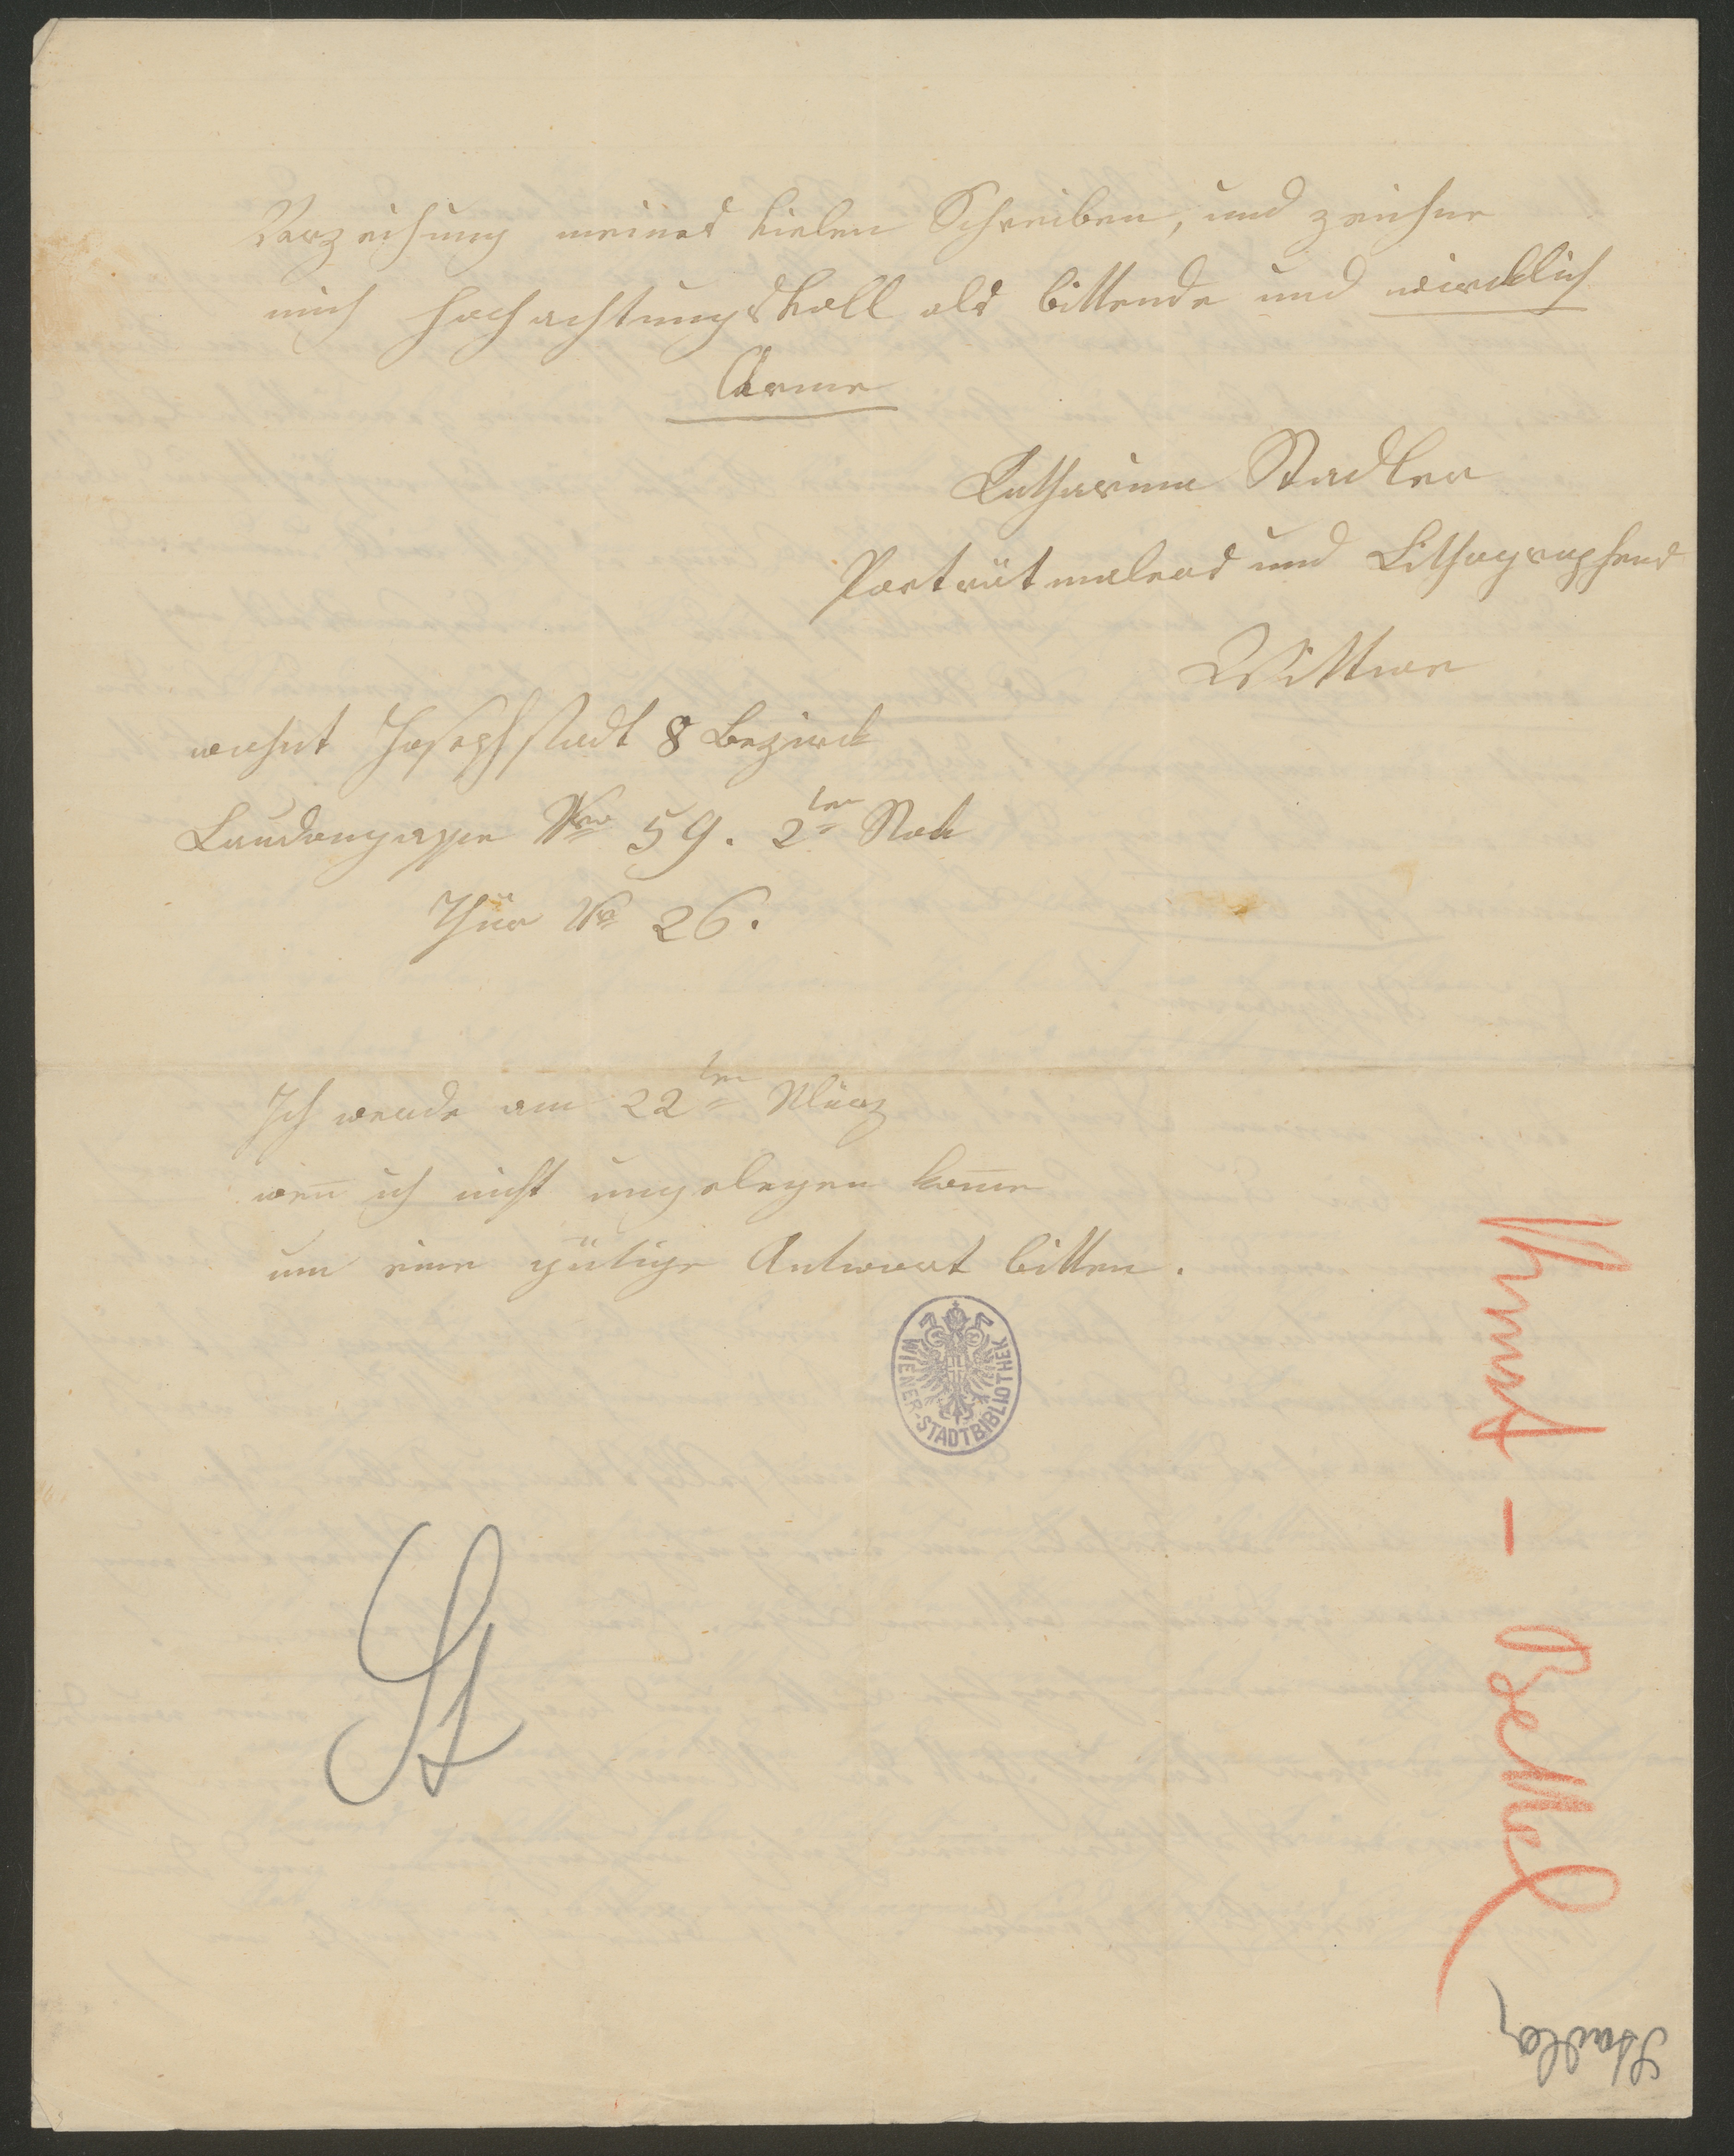 Verzeihung meines vielen Schreiben, und zeichne
mich hochachtungsvoll als bittende und wircklich
Arme
Katharina Stadler
Porträtmalers und Lithographens
Wittwe
wohnt Josephstadt 8 Bezirck
Laudongasse Nro 59. 2ten Stock
Thür No 26.
Ich werde am 22ten März
wen̅ ich nicht ungelegen kom̅e
um eine gütige Antwort bitten.
WIENER-STADTBIBLIOTHEK
St
Kunst - Bettel
Stadler